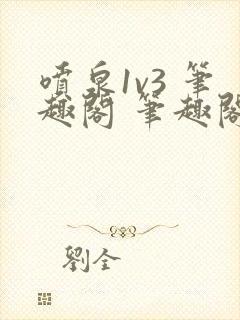 噴泉1v3 筆
趣閣 筆趣閣
劉全